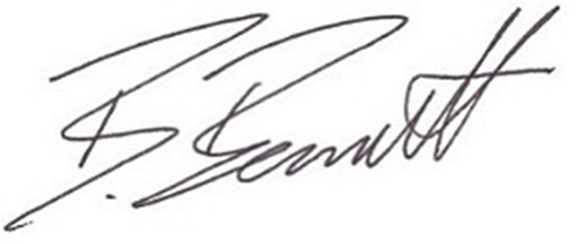 B. Bennett